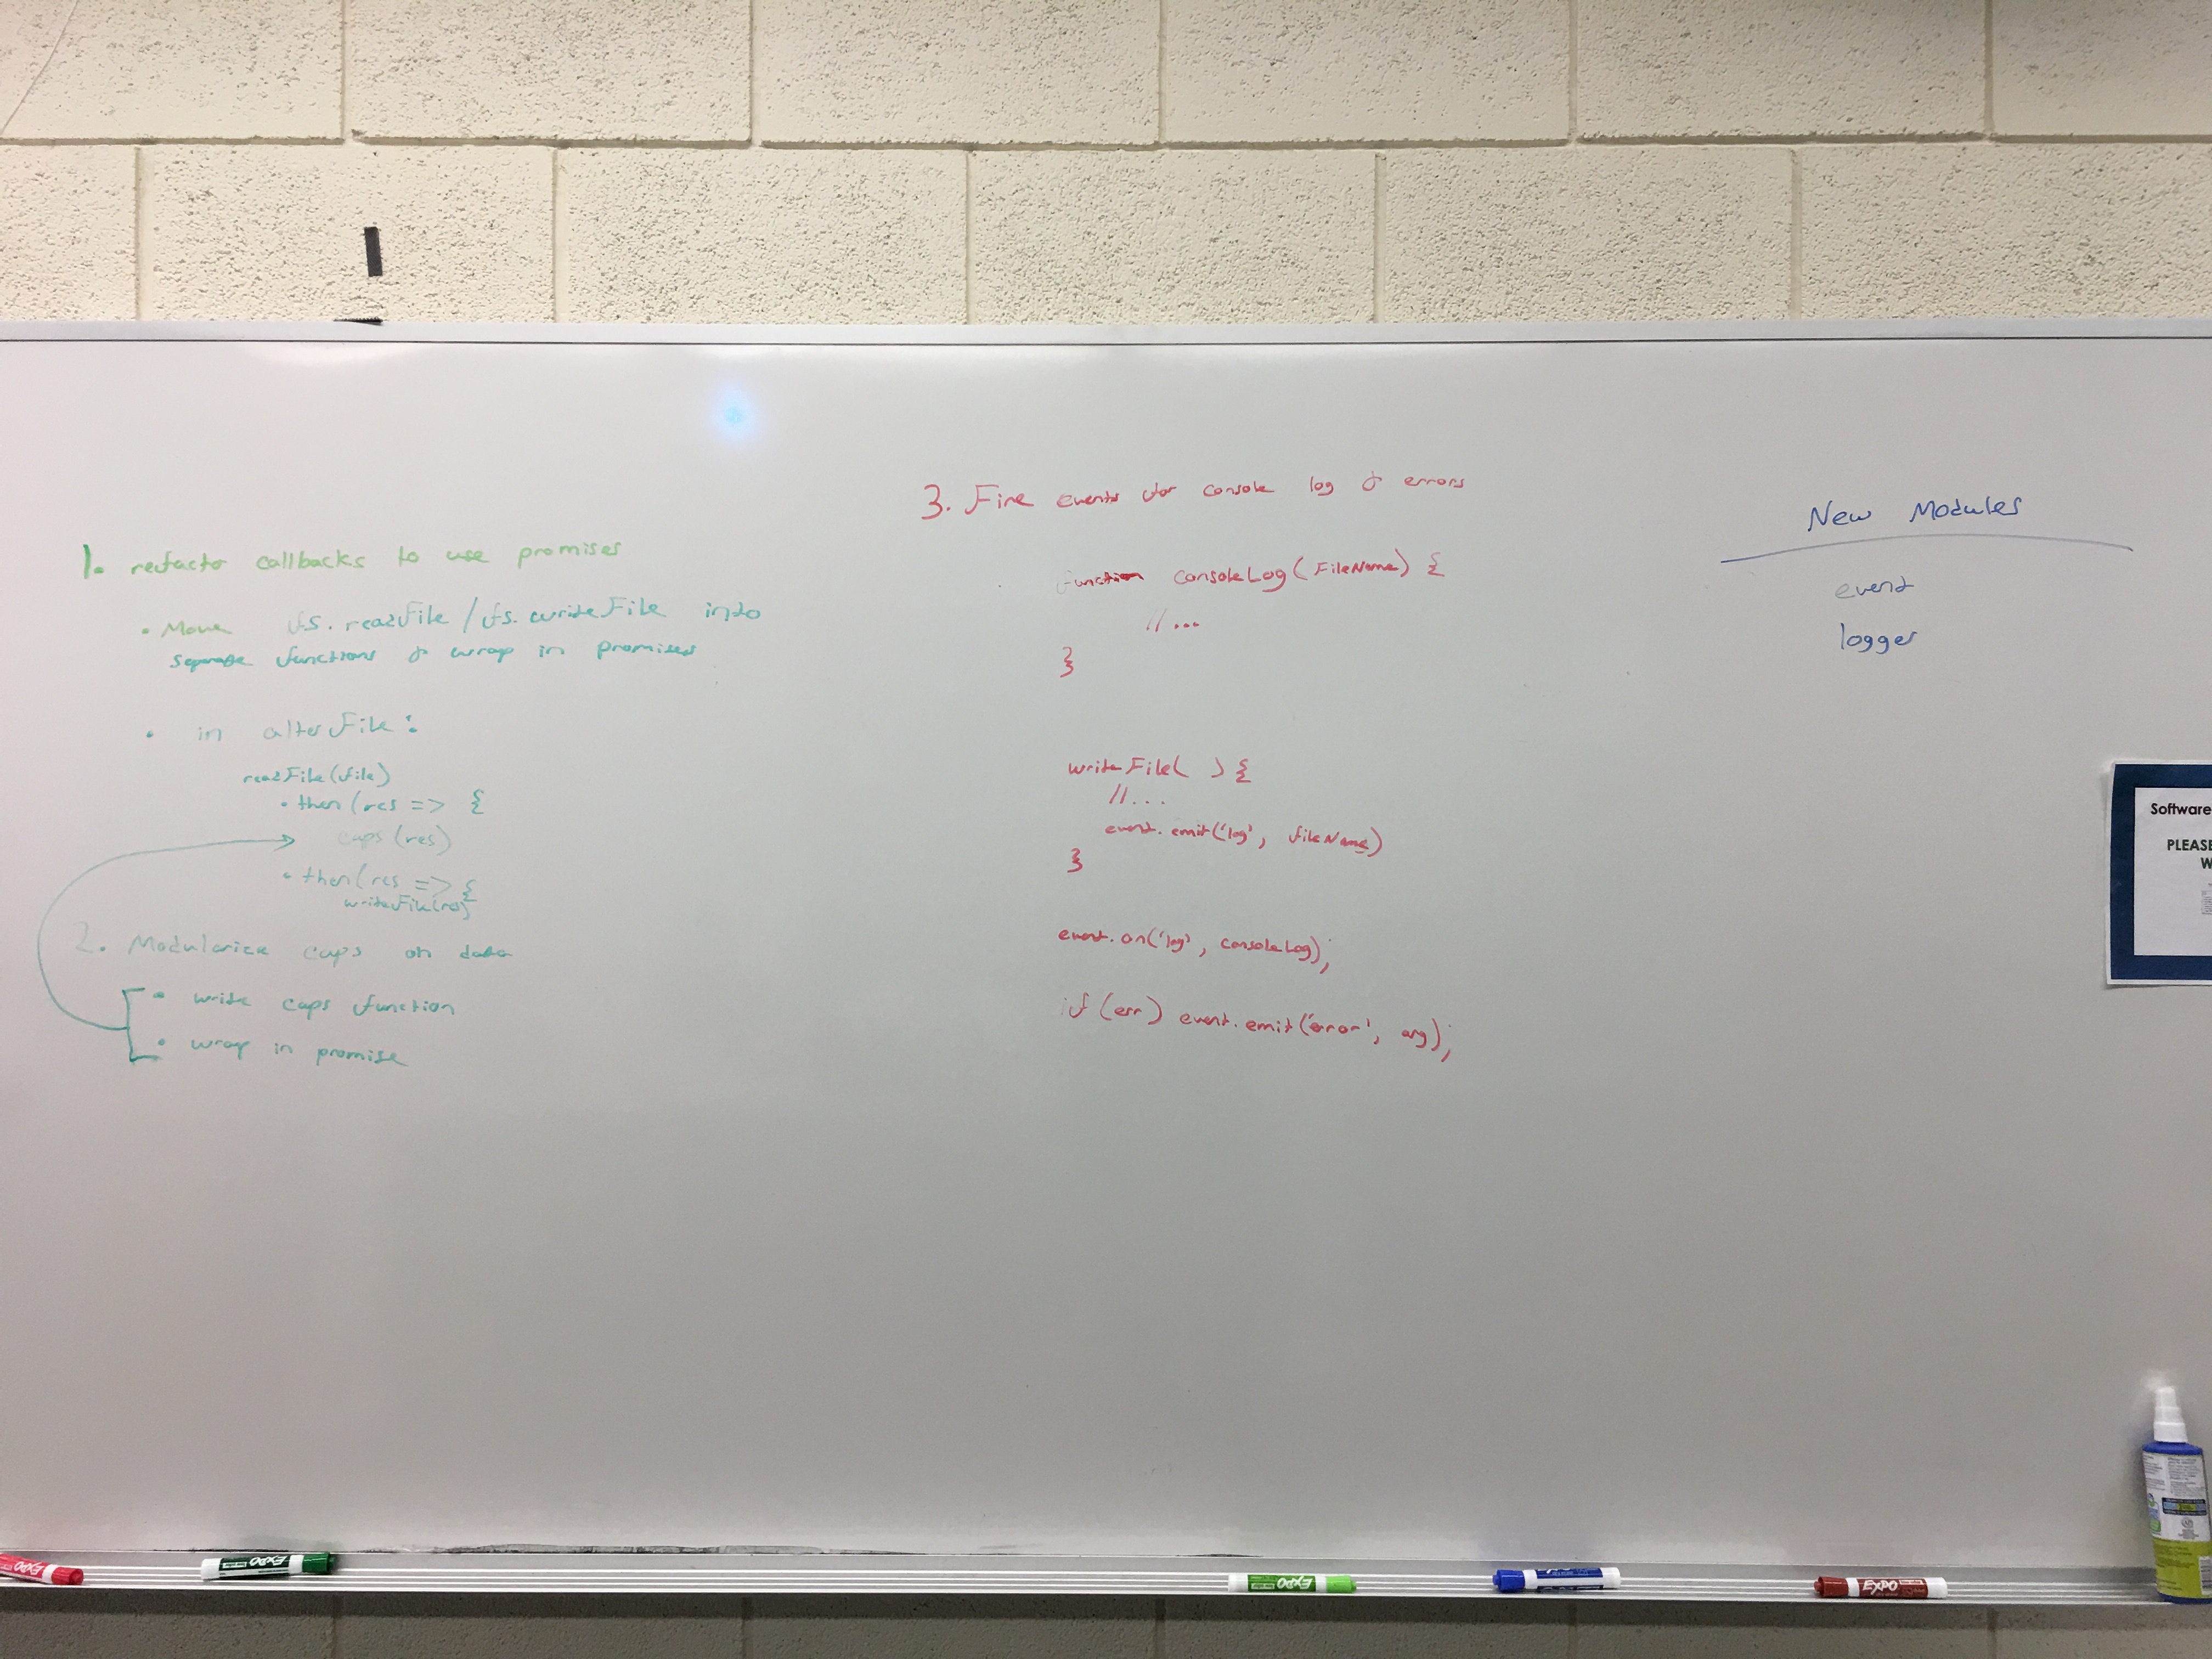 1. refactor callbacks to use promises
• Move fs.readFile / fs.writeFile into
separate functions & wrap in promises
• in alterFile:
readFile(file)
.then(res => {
caps(res)
.then(res => {
writeFile(res)
2. Modularize caps on data
• write caps function
• wrap in promise
3. Fire events for console log & errors
function consoleLog(FileName) {
//...
}
writeFile( ) {
//...
event.emit('log', fileName)
}
event.on('log', consoleLog);
if (err) event.emit('error', arg);
New Modules
event
logger
Software
PLEASE
W
EXPO
EXPO
EXPO
EXPO